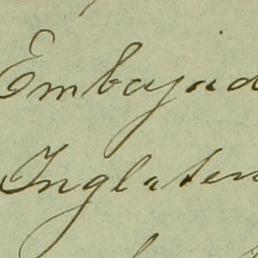 Embajad
Inglater